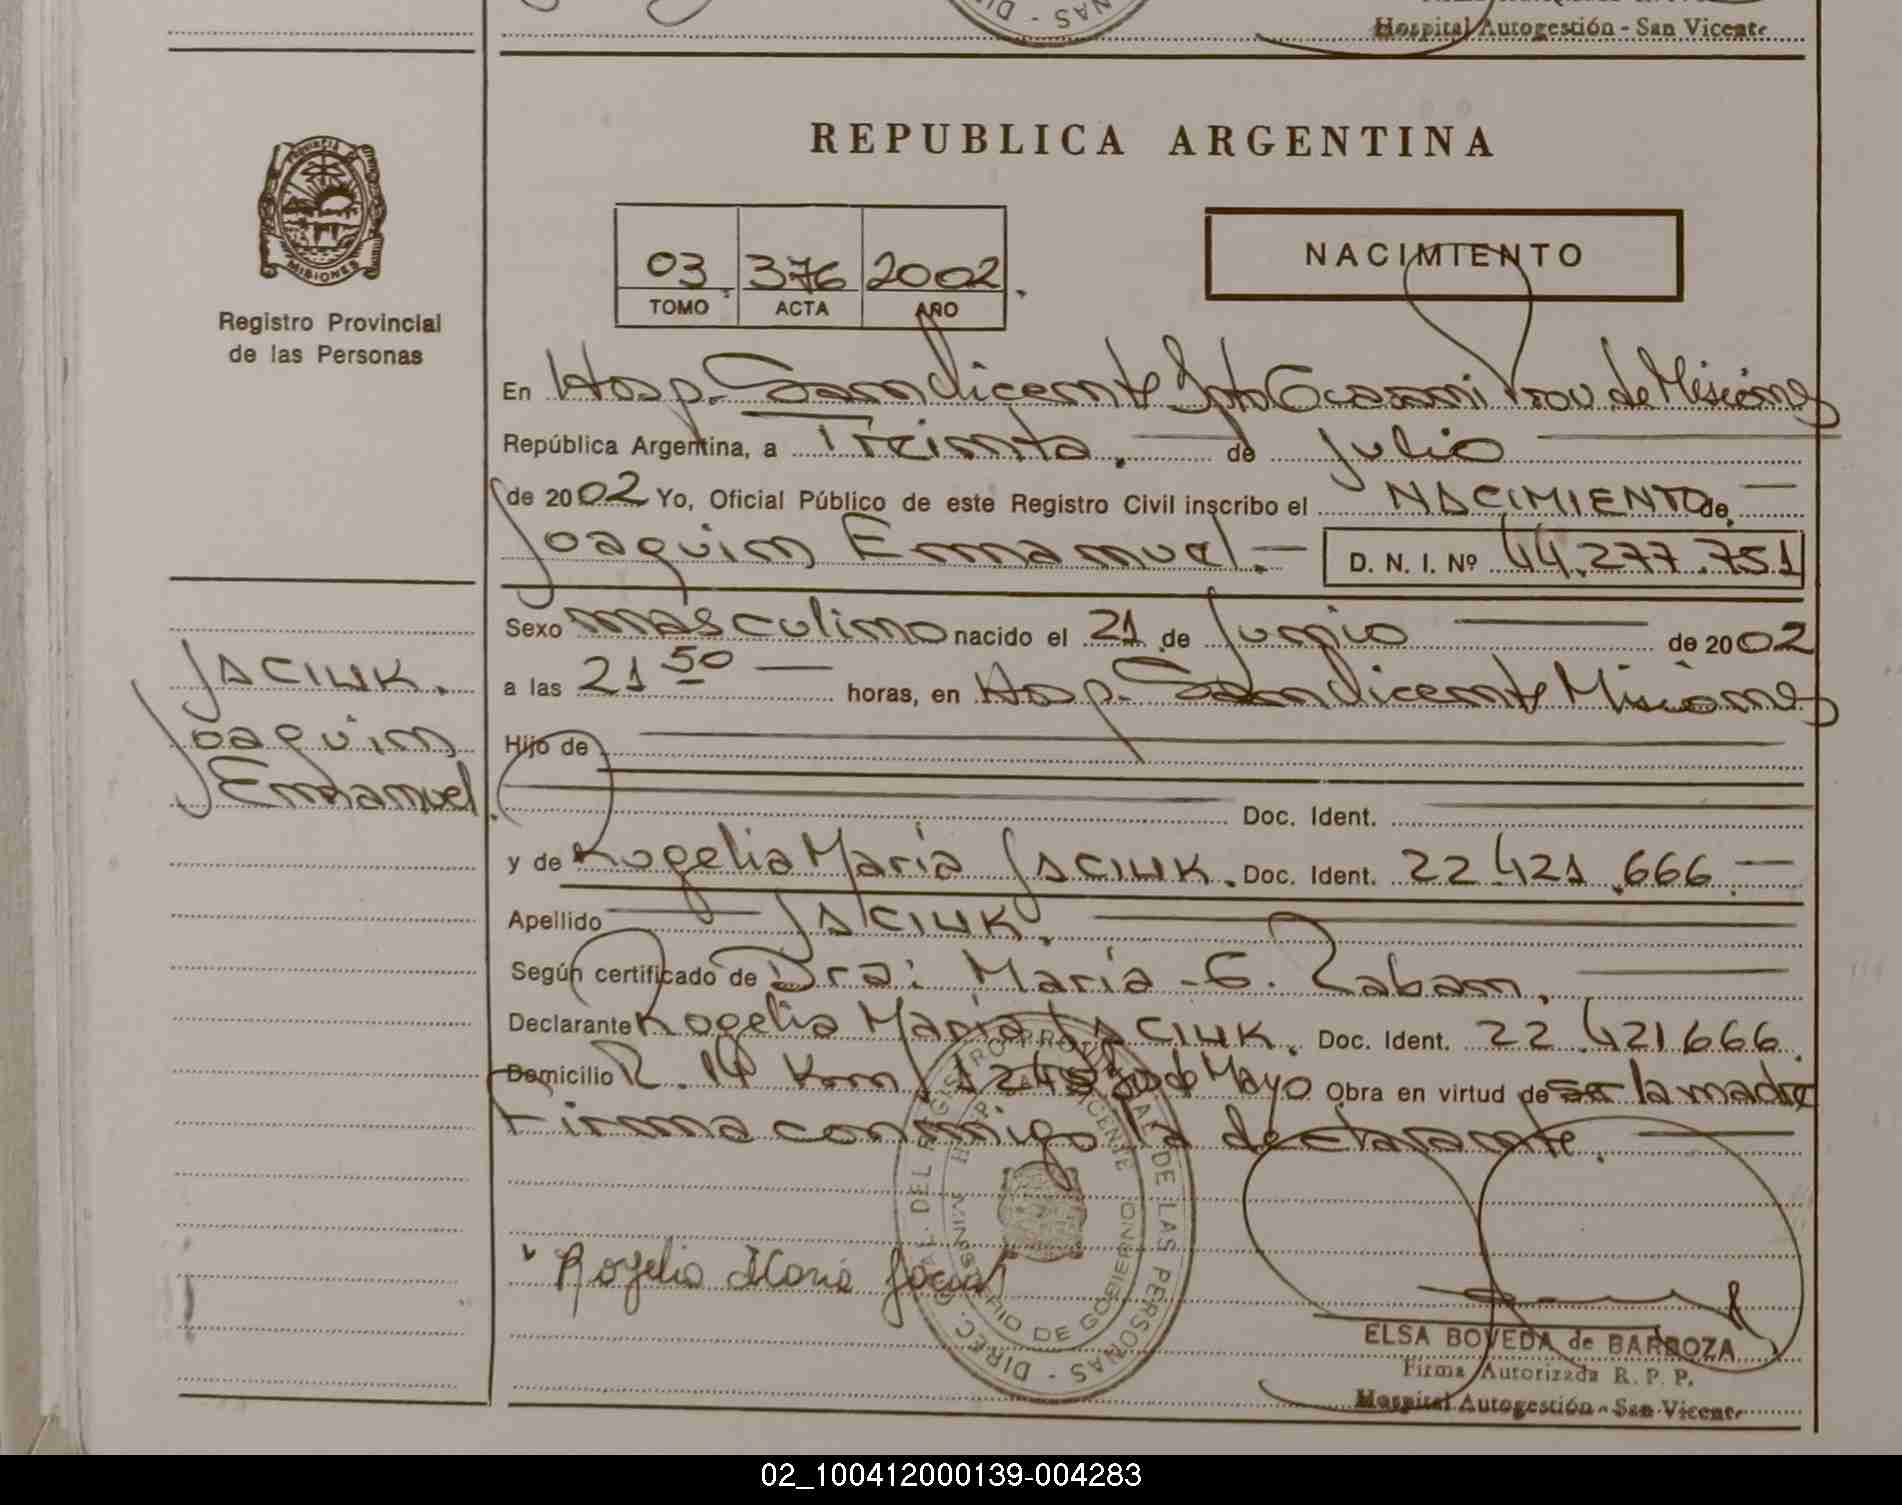 Hospital Autogestión - San Vicente
REPUBLICA ARGENTINA
PROVINCIA DE
MISIONES
Registro Provincial
de las Personas
03 376 2002
TOMO ACTA AÑO
NACIMIENTO
En Hosp. San Vicente Dpto Guaraní Prov. de Misiones
República Argentina, a Treinta. de Julio
de 2002 Yo, Oficial Público de este Registro Civil inscribo el NACIMIENTO de
Joaquin Emmanuel.- D. N. I. Nº 44.277.751
Sexo masculino nacido el 21 de Junio de 2002
a las 21 50 horas, en Hosp. San Vicente Misiones
JACIUK.
Joaquin
Emmanuel.
Hijo de
Doc. Ident.
y de Rogelia María JACIUK. Doc. Ident. 22.421.666.
Apellido JACIUK.
Según certificado de Dra: María - G. Zaban.
Declarante Rogelia María JACIUK. Doc. Ident. 22.421.666.
Domicilio R. 14 Km 1245 de Mayo Obra en virtud de ser la madre
Firma conmigo la declarante.
Rogelia Maria
DIREC. GRAL. DEL REGISTRO PROVINCIAL DE LAS PERSONAS -
HOSP. SAN VICENTE
MINISTERIO DE GOBIERNO
ELSA BOVEDA de BARBOZA
Firma Autorizada R. P. P.
Hospital Autogestión - San Vicente
02_100412000139-004283